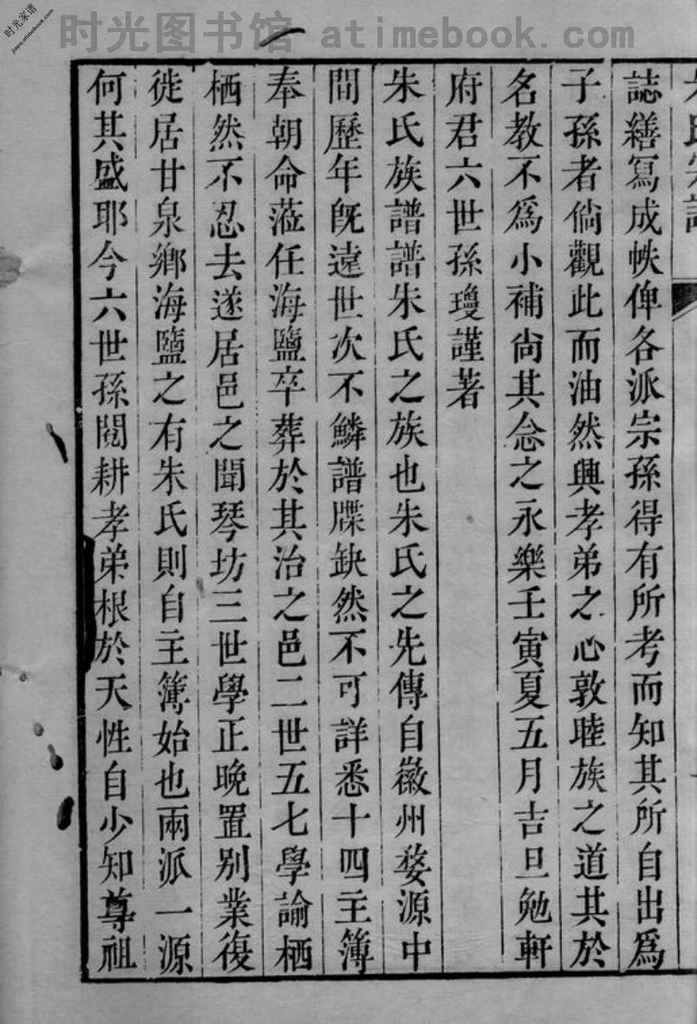 时光家谱
www.atimebook.com
时光图书馆 atimebook.com
誌繕寫成帙俾各派宗孫得有所考而知其所自出爲
子孫者倘觀此而油然興孝弟之心敦睦族之道其於
名教不爲小補尙其念之永樂壬寅夏五月吉旦勉軒
府君六世孫瓊謹著
朱氏族譜譜朱氏之族也朱氏之先傳自徽州婺源中
間歷年旣遠世次不鱗譜牒缺然不可詳悉十四主簿
奉朝命蒞任海鹽卒葬於其治之邑二世五七學諭栖
栖然不忍去遂居邑之聞琴坊三世學正晚置别業復
徙居甘泉鄉海鹽之有朱氏則自主簿始也兩派一源
何其盛耶今六世孫閱耕孝弟根於天性自少知尊祖